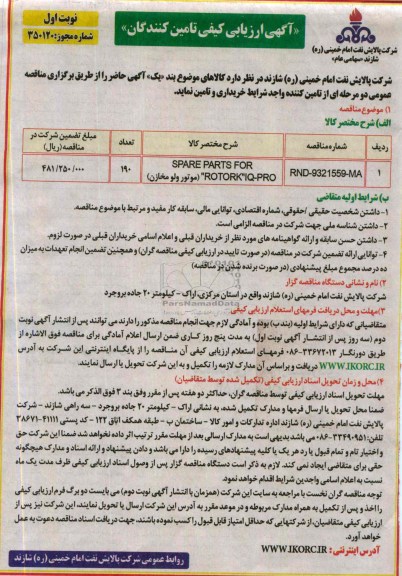 «آگهی ارزیابی کیفی تامین کنندگان»
نوبت اول
شماره مجوز: ۳۵۰۱۲۰
شرکت پالایش نفت امام خمینی (ره)
شازند «سهامی عام»
شرکت پالایش نفت امام خمینی (ره) شازند در نظر دارد کالاهای موضوع بند «یک» آگهی حاضر را از طریق برگزاری مناقصه
عمومی دو مرحله ای از تامین کننده واجد شرایط خریداری و تامین نماید.
۱) موضوع مناقصه
الف) شرح مختصر کالا
ردیف شماره مناقصه شرح مختصر کالا تعداد مبلغ تضمین شرکت در
مناقصه (ریال)
۱ RND-9321559-MA SPARE PARTS FOR ۱۹۰ ۴۸۱/۲۵۰/۰۰۰
"ROTORK"IQ-PRO (موتور ولو مخازن)
ب) شرایط اولیه متقاضی
۱- داشتن شخصیت حقیقی / حقوقی، شماره اقتصادی، توانایی مالی، سابقه کار مفید و مرتبط با موضوع مناقصه.
۲- داشتن شناسه ملی جهت شرکت در مناقصه الزامی است.
۳- داشتن حسن سابقه و ارائه گواهینامه های مورد نظر از خریداران قبلی و اعلام اسامی خریداران قبلی در صورت لزوم.
۴- توانایی ارائه تضمین شرکت در مناقصه (در صورت تایید در ارزیابی کیفی مناقصه گران) و همچنین تضمین انجام تعهدات به میزان
ده درصد مجموع مبلغ پیشنهادی (در صورت برنده شدن در مناقصه)
۲) نام و نشانی دستگاه مناقصه گزار
شرکت پالایش نفت امام خمینی (ره) شازند واقع در استان مرکزی، اراک - کیلومتر ۲۰ جاده بروجرد
۳) مهلت و محل دریافت فرمهای استعلام ارزیابی کیفی
متقاضیانی که دارای شرایط اولیه (بند ب) بوده و آمادگی لازم جهت انجام مناقصه مذکور را دارند می توانند پس از انتشار آگهی نوبت
دوم (سه روز پس از انتشار آگهی نوبت اول) به مدت پنج روز کاری ضمن ارسال اعلام آمادگی برای مناقصه فوق الاشاره از
طریق دورنگار ۳۳۶۷۲۰۱۳-۰۸۶ فرمهای استعلام ارزیابی کیفی آن مناقصه را از پایگاه اینترنتی این شرکت به آدرس
WWW.IKORC.IR دریافت و براساس آن مدارک لازمه را تکمیل و به این شرکت تحویل یا ارسال نمایند.
۴) محل و زمان تحویل اسناد ارزیابی کیفی (تکمیل شده توسط متقاضیان)
مهلت تحویل اسناد ارزیابی کیفی توسط مناقصه گران، حداکثر دو هفته پس از مقرر وفق بند ۳ فوق الذکر می باشد.
ضمنا محل تحویل یا ارسال فرمها و مدارک تکمیل شده، به نشانی اراک - کیلومتر ۲۰ جاده بروجرد - سه راهی شازند - شرکت
پالایش نفت امام خمینی (ره) شازند اداره تدارکات و امور کالا - ساختمان ب - طبقه همکف اتاق ۱۲۲ - کد پستی ۴۱۱۱۱-۳۸۶۷۱
تلفن: ۳۳۴۹۰۹۵۱-۰۸۶ می باشد بدیهی است به مدارک ارسالی بعد از مهلت مقرر ترتیب اثر داده نخواهد شد ضمنا این شرکت حق
و اختیار تام و تمام قبول یا رد هر یک یا کلیه پیشنهادهای رسیده را دارا می باشد و دادن پیشنهاد و ارائه اسناد و مدارک هیچگونه
حقی برای متقاضی ایجاد نمی کند. لازم به ذکر است دستگاه مناقصه گزار پس از وصول اسناد ارزیابی کیفی ظرف مدت یک ماه
نسبت به اعلام اسامی واجدین شرایط اقدام خواهد نمود.
توجه مناقصه گران نخست با مراجعه به سایت این شرکت (همزمان با انتشار آگهی نوبت دوم) می بایست دو برگ فرم ارزیابی کیفی
را اخذ و پس از تکمیل به همراه مدارک مربوطه و در موعد مقرر به آدرس این شرکت ارسال یا تحویل نمایند، این شرکت نیز پس از
ارزیابی کیفی متقاضیان، از شرکتهایی که حداقل امتیاز قابل قبول را کسب نموده باشند، جهت دریافت اسناد مناقصه دعوت به عمل
خواهد آورد.
آدرس اینترنتی : WWW.IKORC.IR
روابط عمومی شرکت پالایش نفت امام خمینی (ره) شازند